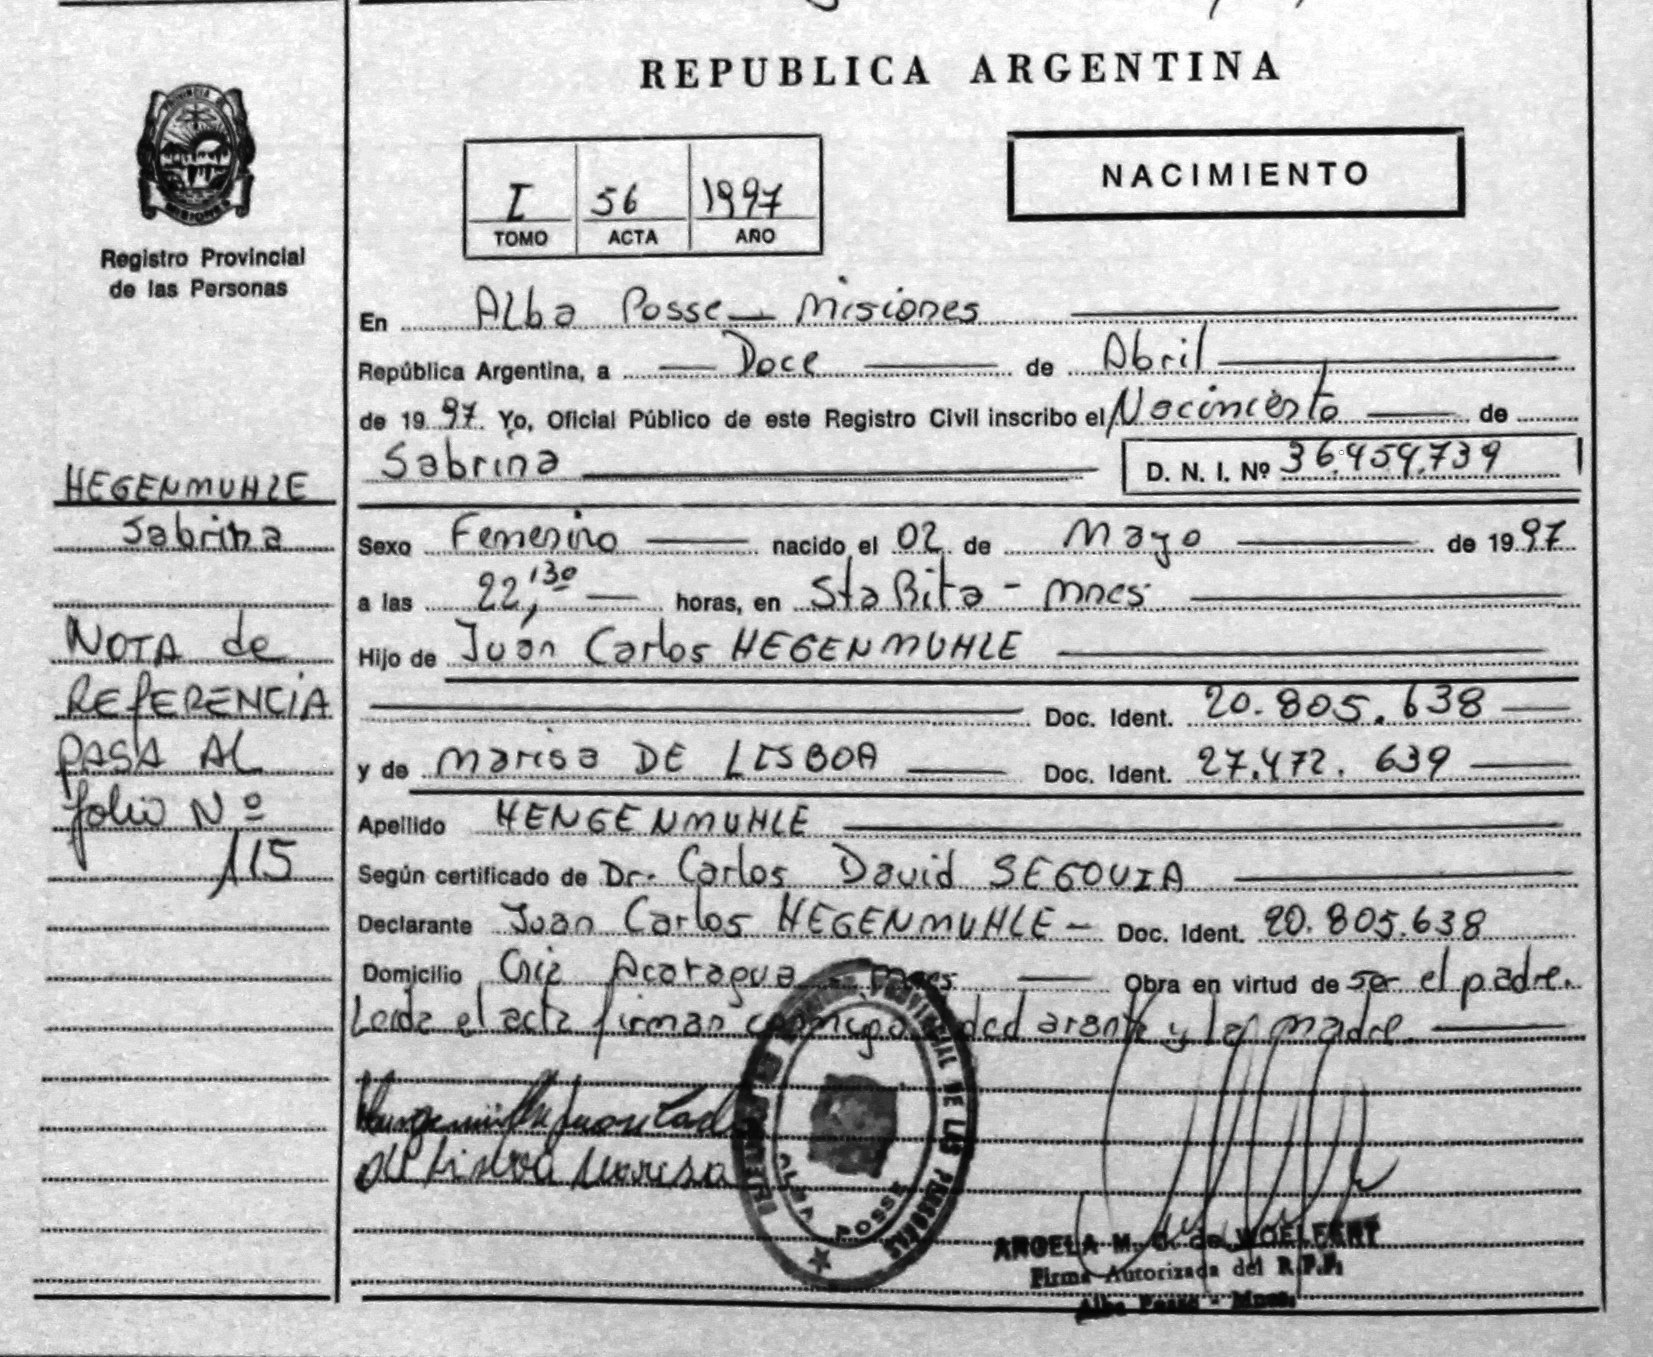 REPUBLICA ARGENTINA
PROVINCIA D
MISIONES
Registro Provincial
de las Personas
I 56 1997
TOMO ACTA AÑO
NACIMIENTO
En Alba Posse - Misiones
República Argentina, a Doce de Abril
de 1997 Yo, Oficial Público de este Registro Civil inscribo el Nacimiento de
Sabrina D. N. I. Nº 36.459.739
HEGENMUHLE
Sabrina
NOTA de
REFERENCIA
PASA AL
folio Nº
115
Sexo Femenino nacido el 02 de Mayo de 1997
a las 22,30 horas, en Sta Rita - Mnes
Hijo de Juan Carlos HEGENMUHLE
Doc. Ident. 20.805.638
y de Marisa DE LISBOA Doc. Ident. 27.472.639
Apellido HENGENMUHLE
Según certificado de Dr. Carlos David SEGOVIA
Declarante Juan Carlos HEGENMUHLE - Doc. Ident. 20.805.638
Domicilio Acaragua - Mnes Obra en virtud de ser el padre.
Leida el acta firman conmigo declarante y la madre.
PROVINCIAL DE LAS PERSONAS
ALBA POSSE
ANGELA M. de WOELFERT
Firma Autorizada del R.P.P.
Alba Posse - Mnes.